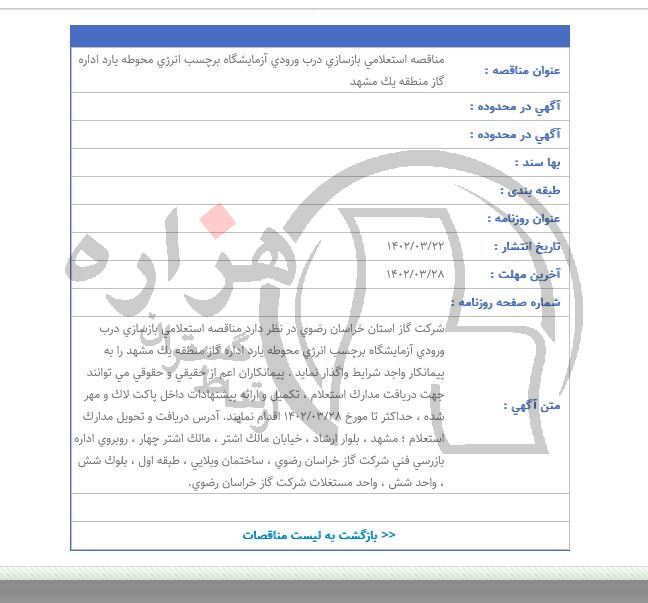 عنوان مناقصه : مناقصه استعلامي بازسازي درب ورودي آزمايشگاه برچسب انرژي محوطه يارد اداره
گاز منطقه يك مشهد
آگهي در محدوده :
آگهي در محدوده :
بها سند :
طبقه بندی :
عنوان روزنامه :
تاريخ انتشار : ۱۴۰۲/۰۳/۲۲
آخرين مهلت : ۱۴۰۲/۰۳/۲۸
شماره صفحه روزنامه :
متن آگهي :
شركت گاز استان خراسان رضوي در نظر دارد مناقصه استعلامي بازسازي درب
ورودي آزمايشگاه برچسب انرژي محوطه يارد اداره گاز منطقه يك مشهد را به
پيمانكار واجد شرايط واگذار نمايد . پيمانكاران اعم از حقيقي و حقوقي مي توانند
جهت دريافت مدارك استعلام ، تكميل و ارائه پيشنهادات داخل پاكت لاك و مهر
شده ، حداكثر تا مورخ ۱۴۰۲/۰۳/۲۸ اقدام نمايند. آدرس دريافت و تحويل مدارك
استعلام ؛ مشهد ، بلوار ارشاد ، خيابان مالك اشتر ، مالك اشتر چهار ، روبروي اداره
بازرسي فني شركت گاز خراسان رضوي ، ساختمان ويلايي ، طبقه اول ، بلوك شش
، واحد شش ، واحد مستغلات شركت گاز خراسان رضوي.
<< بازگشت به ليست مناقصات
هزاره